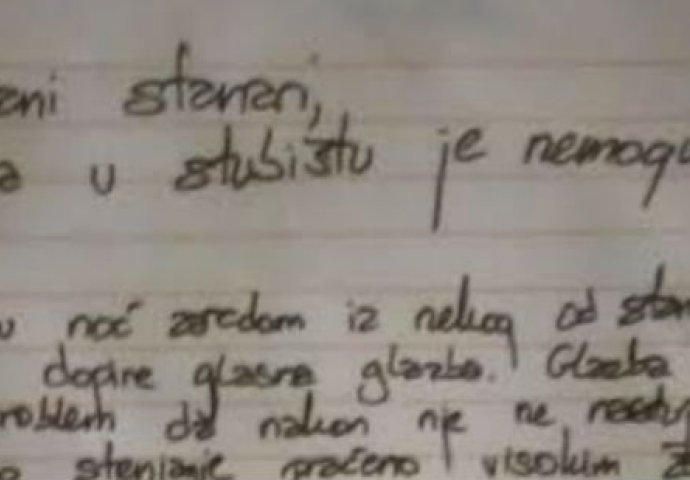 ani stanari,
a u stubištu je nemogu
u noć zaredom iz nekog od stan
dopire glasna glazba. Glazba
roblem da nakon nje ne nastup
stenjanje praćeno visokim